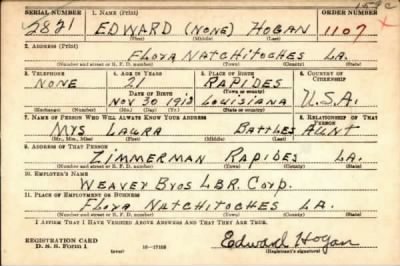 159C
SERIAL NUMBER 1. NAME (Print) ORDER NUMBER
2821 EDWARD (NONE) HOGAN 1107
(First) (Middle) (Last)
2. ADDRESS (Print)
FLORA NATCHITOCHES LA.
(Number and street or R. F. D. number) (Town) (County) (State)
3. TELEPHONE 4. AGE IN YEARS 5. PLACE OF BIRTH 6. COUNTRY OF CITIZENSHIP
NONE 21 RAPIDES
DATE OF BIRTH (Town or county)
NOV 30 1918 LOUISIANA U.S.A.
(Exchange) (Number) (Mo.) (Day) (Yr.) (State or country)
7. NAME OF PERSON WHO WILL ALWAYS KNOW YOUR ADDRESS 8. RELATIONSHIP OF THAT PERSON
MRS LAURA BATTLES AUNT
(Mr., Mrs., Miss) (First) (Middle) (Last)
9. ADDRESS OF THAT PERSON
ZIMMERMAN RAPIDES LA.
(Number and street or R. F. D. number) (Town) (County) (State)
10. EMPLOYER'S NAME
WEAVER BROS LBR. CORP.
11. PLACE OF EMPLOYMENT OR BUSINESS
FLORA NATCHITOCHES LA.
(Number and street or R. F. D. number) (Town) (County) (State)
I AFFIRM THAT I HAVE VERIFIED ABOVE ANSWERS AND THAT THEY ARE TRUE.
REGISTRATION CARD
D. S. S. Form 1 (over) 16-17105
Edward Hogan
(Registrant's signature)